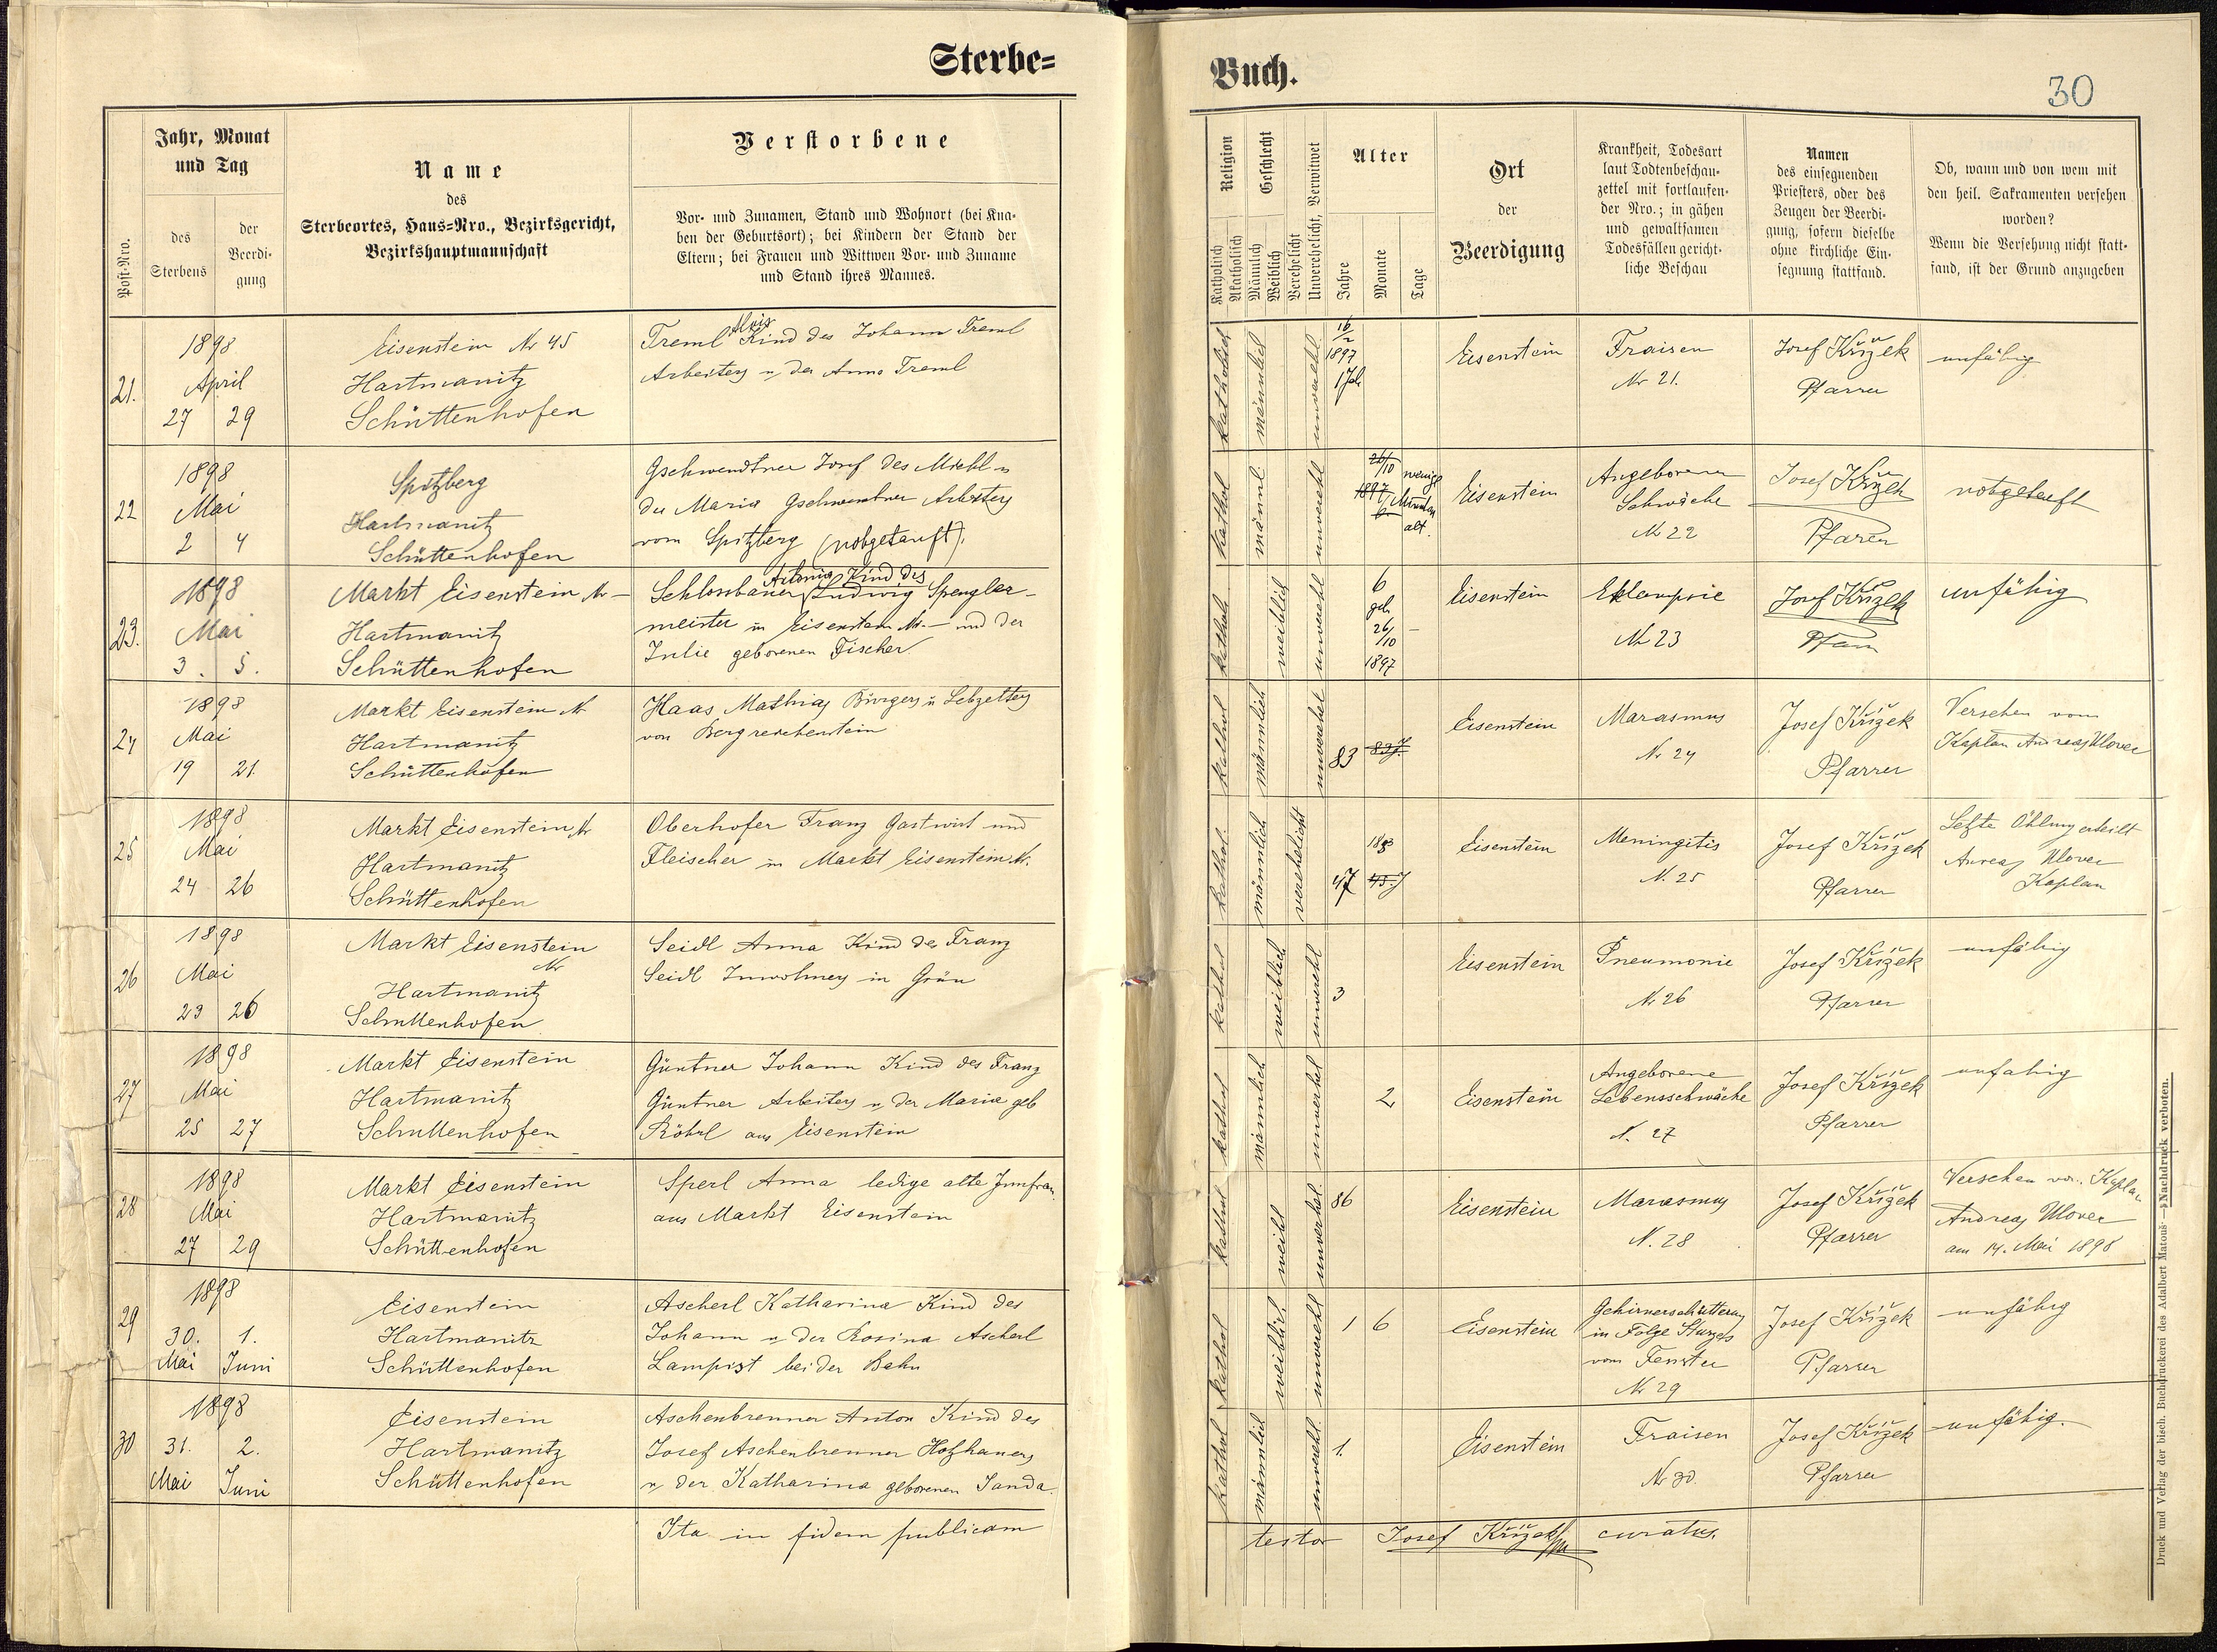 Sterbe=
Post-Nro.
Jahr, Monat
und Tag
des
Sterbens
der
Beerdi-
gung
Name
des
Sterbeortes, Haus-Nro., Bezirksgericht,
Bezirkshauptmannschaft
Verstorbene
Vor- und Zunamen, Stand und Wohnort (bei Kna-
ben der Geburtsort); bei Kindern der Stand der
Eltern; bei Frauen und Wittwen Vor- und Zuname
und Stand ihres Mannes.
21.
1898
April
27 29
Eisenstein Nr 45
Hartmanitz
Schüttenhofen
Alois
Treml Kind des Johann Treml
Arbeiters u. der Anna Treml
22
1898
Mai
2 4
Spitzberg
Hartmanitz
Schüttenhofen
Gschwendtner Josef des Michl u
der Maria Gschwendtner Arbeiters
vom Spitzberg (nothgetauft).
23.
1898
Mai
3. 5.
Markt Eisenstein Nr –
Hartmanitz
Schüttenhofen
Antonia Kind des
Schlossbauer Ludwig Spengler-
meister in Eisenstein Nr. — und der
Julie geborenen Fischer
24
1898
Mai
19 21.
Markt Eisenstein N
Hartmanitz
Schüttenhofen
Haas Mathias Bürgers u Lebzelters
von Bergreichenstein
25
1898
Mai
24 26
Markt Eisenstein Nr
Hartmanitz
Schüttenhofen
Oberhofer Franz Gastwirt und
Fleischer in Markt Eisenstein N.
26
1898
Mai
23 26
Markt Eisenstein
Nr
Hartmanitz
Schuttenhofen
Seidl Anna Kind des Franz
Seidl Inwohners in Grün
27
1898
Mai
25 27
Markt Eisenstein
Hartmanitz
Schuttenhofen
Güntner Johann Kind des Franz
Güntner Arbeiters u. der Maria geb
Röhrl aus Eisenstein
28
1898
Mai
27 29
Markt Eisenstein
Hartmanitz
Schüttenhofen
Sperl Anna ledige alte Junfrau
aus Markt Eisenstein
29
1898
30. 1.
Mai Juni
Eisenstein
Hartmanitz
Schüttenhofen
Ascherl Katharina Kind des
Johann u. der Rosina Ascherl
Lampist bei der Bahn
30
1898
31. 2.
Mai Juni
Eisenstein
Hartmanitz
Schüttenhofen
Aschenbrenner Anton Kind des
Josef Aschenbrenner Holzhauers
u. der Katharina geborenen Janda
Ita in fidem publicam
Buch.
30
Religion
Katholisch
Akatholisch
Geschlecht
Männlich
Weiblich
Verehelicht
Unverehelicht, Verwitwet
Alter
Jahre
Monate
Tage
Ort
der
Beerdigung
Krankheit, Todesart
laut Todtenbeschau-
zettel mit fortlaufen-
der Nro.; in gähen
und gewaltsamen
Todesfällen gericht-
liche Beschau
Namen
des einsegnenden
Priesters, oder des
Zeugen der Beerdi-
gung, sofern dieselbe
ohne kirchliche Ein-
segnung stattfand.
Ob, wann und von wem mit
den heil. Sakramenten versehen
worden?
Wenn die Versehung nicht statt-
fand, ist der Grund anzugeben
katholisch
männlich
unverehel.
16/2
1897
1 Jah
Eisenstein
Fraisen
Nr 21.
Josef Křížek
Pfarrer
unfähig
kathol
männl.
unverehl
26/10
1897
wenige
Minuten
alt.
Eisenstein
Angeborene
Schwäche
Nr 22
Josef Křížek
Pfarrer
notgetauft
kathol.
weiblich
unverehl
6
geb
26/10
1897
–
Eisenstein
Eklampsie
Nr 23
Josef Křížek
Pfarr
unfähig
kathol
männlich
unverehel
83 83 J.
Eisenstein
Marasmus
Nr 24
Josef Křížek
Pfarrer
Versehen vom
Kaplan Andreas Ulover
kathol.
männlich
verehelicht
47 45 J
Eisenstein
Meningitis
N. 25
Josef Křížek
Pfarrer
Letzte Öhlung erteilt
Andreas Ulover
Kaplan
kathol
weiblich
unverehl
3
Eisenstein
Pneumonie
Nr 26
Josef Křížek
Pfarrer
unfähig
kathol
männlich
unverhel
2
Eisenstein
Angeborene
Lebensschwäche
N. 27
Josef Křížek
Pfarrer
unfahig
kathol
weibl
unverhel.
86
Eisenstein
Marasmus
N. 28
Josef Křížek
Pfarrer
Versehen von Kaplan
Andreas Ulover
am 14. Mai 1898
kathol
weiblich
unverehl
1 6
Eisenstein
Gehirnerschütterung
in Folge Sturzes
vom Fenster
Nr 29
Josef Křížek
Pfarrer
unfähig
kathol
männlich
unverehl.
1.
Eisenstein
Fraisen
Nr 30.
Josef Křížek
Pfarrer
unfähig.
testor Josef Křížek curatus.
Druck und Verlag der bisch. Buchdruckerei des Adalbert Matouš — Nachdruck verboten.